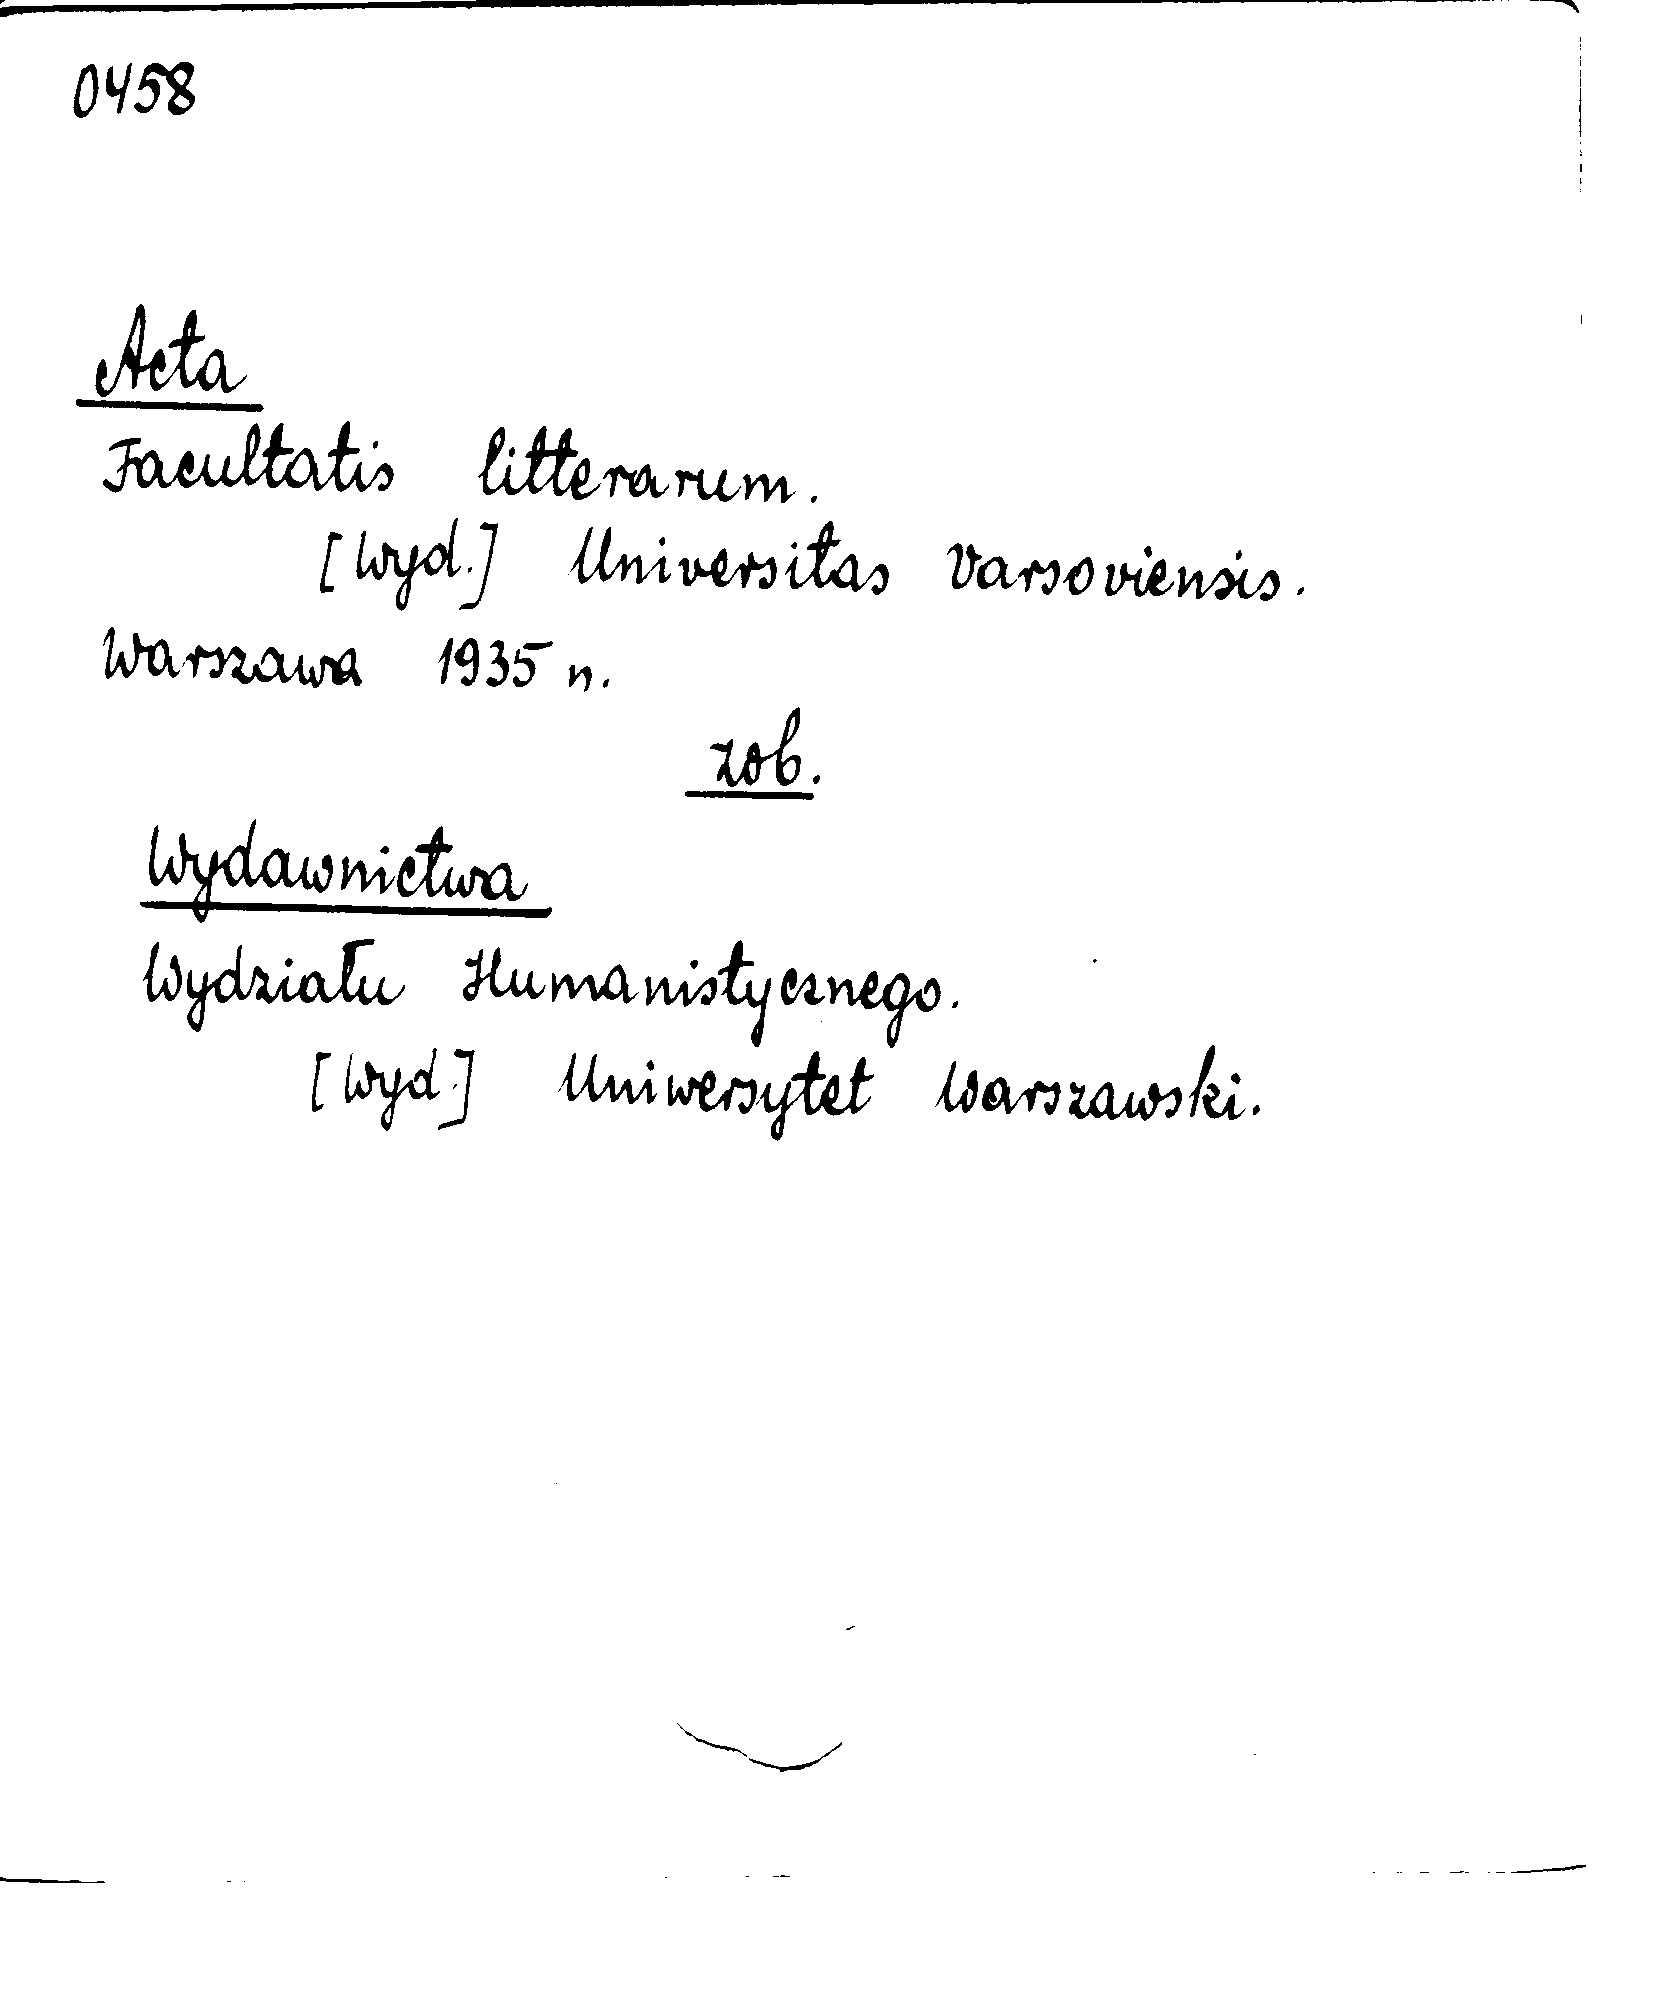 0458
Acta
Facultatis litterarum.
[Wyd.] Universitas Varsoviensis.
Warszawa 1935 n.
zob.
Wydawnictwa
Wydziału Humanistycznego.
[Wyd.] Uniwersytet Warszawski.